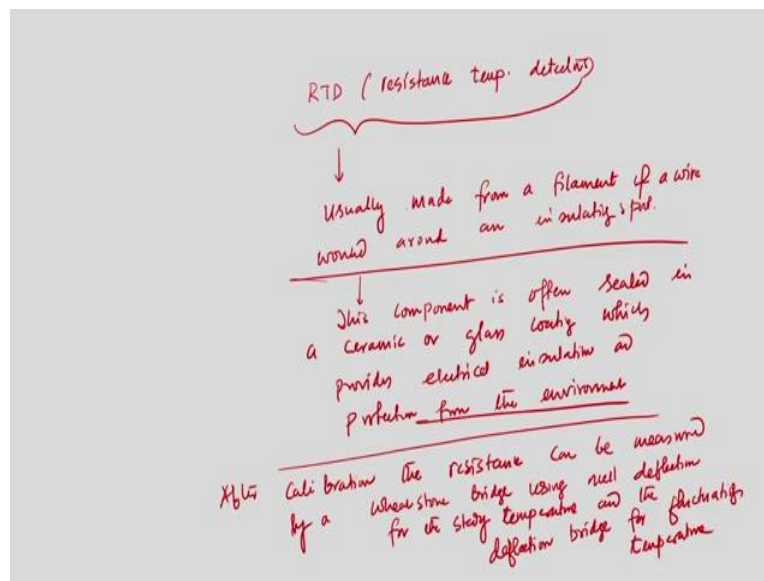 RTD (resistance temp. detector)
Usually made from a filament of a wire
wound around an insulating spool.
This component is often sealed in
a ceramic or glass coating which
provides electrical insulation and
protection from the environment
After calibration the resistance can be measured
by a wheatstone bridge using null deflection
for the steady temperature and the
deflection bridge for fluctuating
temperature